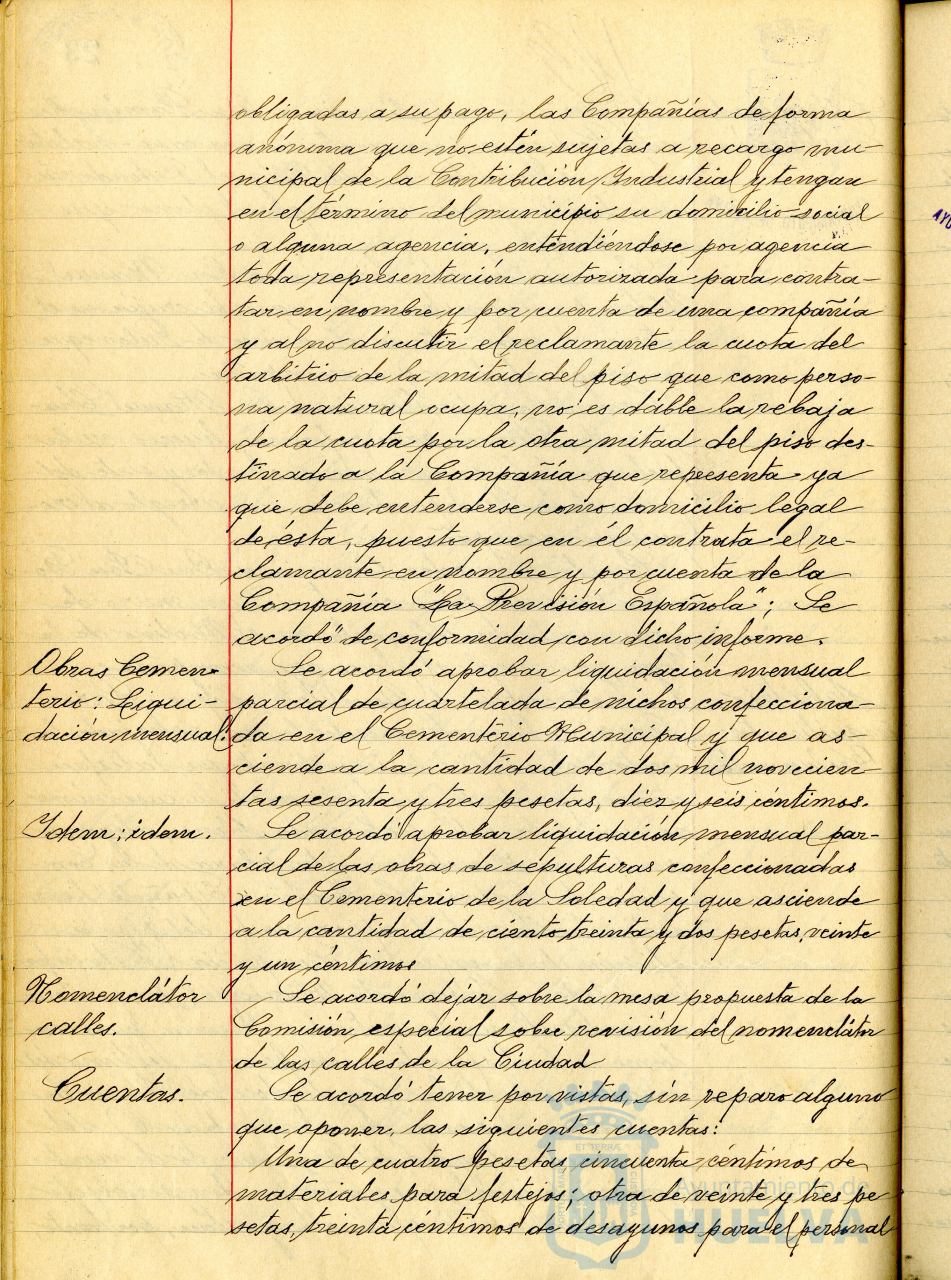 obligadas a su pago, las Compañías de forma
anónima que no estén sujetas a recargo mu-
nicipal de la Contribución Industrial y tengan
en el término del municipio su domicilio social
o alguna agencia, entendiéndose por agencia
toda representación autorizada para contra-
tar en nombre y por cuenta de una compañía
y al no discutir el reclamante la cuota del
arbitrio de la mitad del piso que como perso-
na natural ocupa, no es dable la rebaja
de la cuota por la otra mitad del piso des-
tinado a la Compañía que representa ya
que debe entenderse como domicilio legal
de ésta, puesto que en él contrata el re-
clamante en nombre y por cuenta de la
Compañía "La Previsión Española"; Se
acordó de conformidad con dicho informe.
Obras Cemen-
terio: Liqui-
dación mensual.
Se acordó aprobar liquidación mensual
parcial de cuartelada de nichos confecciona-
da en el Cementerio Municipal y que as-
ciende a la cantidad de dos mil novecien-
tas sesenta y tres pesetas, diez y seis céntimos.
Idem: idem.
Se acordó aprobar liquidación mensual par-
cial de las obras de sepulturas confeccionadas
en el Cementerio de la Soledad y que asciende
a la cantidad de ciento treinta y dos pesetas, veinte
y un céntimos
Nomenclátor
calles.
Se acordó dejar sobre la mesa propuesta de la
Comisión especial sobre revisión del nomenclátor
de las calles de la Ciudad
Cuentas.
Se acordó tener por vistas, sin reparo alguno
que oponer, las siguientes cuentas:
Una de cuatro pesetas cincuenta céntimos de
materiales para festejos; otra de veinte y tres pe
setas, treinta céntimos de desayunos para el personal
Ayuntamiento de
HUELVA